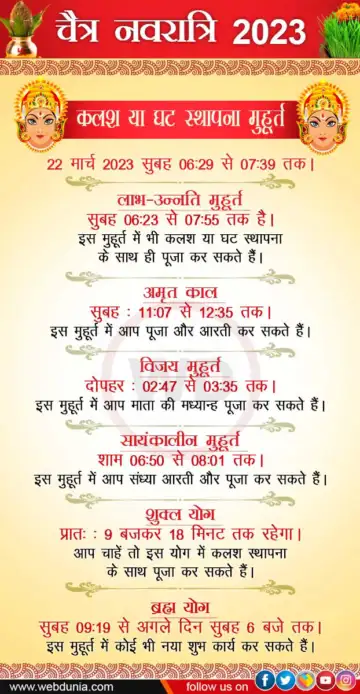 चैत्र नवरात्रि 2023
कलश या घट स्थापना मुहूर्त
22 मार्च 2023 सुबह 06:29 से 07:39 तक।
लाभ-उन्नति मुहूर्त
सुबह 06:23 से 07:55 तक है।
इस मुहूर्त में भी कलश या घट स्थापना
के साथ ही पूजा कर सकते हैं।
अमृत काल
सुबह : 11:07 से 12:35 तक।
इस मुहूर्त में आप पूजा और आरती कर सकते हैं।
विजय मुहूर्त
दोपहर : 02:47 से 03:35 तक।
इस मुहूर्त में आप माता की मध्यान्ह पूजा कर सकते हैं।
सायंकालीन मुहूर्त
शाम 06:50 से 08:01 तक।
इस मुहूर्त में आप संध्या आरती और पूजा कर सकते हैं।
शुक्ल योग
प्रातः : 9 बजकर 18 मिनट तक रहेगा।
आप चाहें तो इस योग में कलश स्थापना
के साथ पूजा कर सकते हैं।
ब्रह्म योग
सुबह 09:19 से अगले दिन सुबह 6 बजे तक।
इस मुहूर्त में कोई भी नया शुभ कार्य कर सकते हैं।
www.webdunia.com follow us on